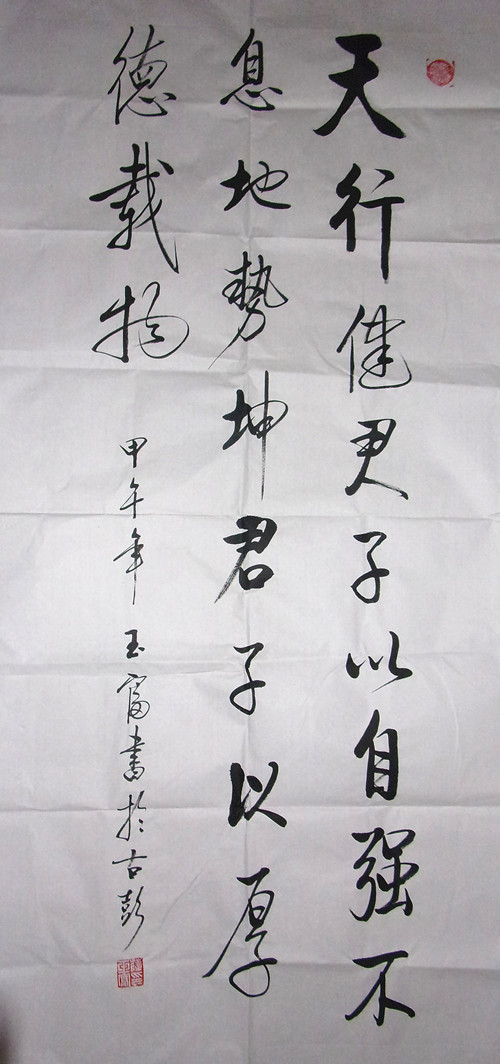 天行健君子以自强不
息地势坤君子以厚
德载物
甲午年玉富书于古彭